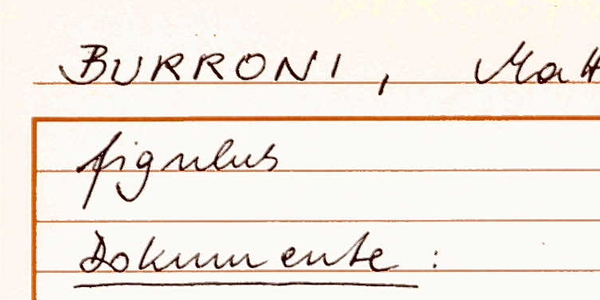 BURRONI, Matt
figulus
Dokumente :